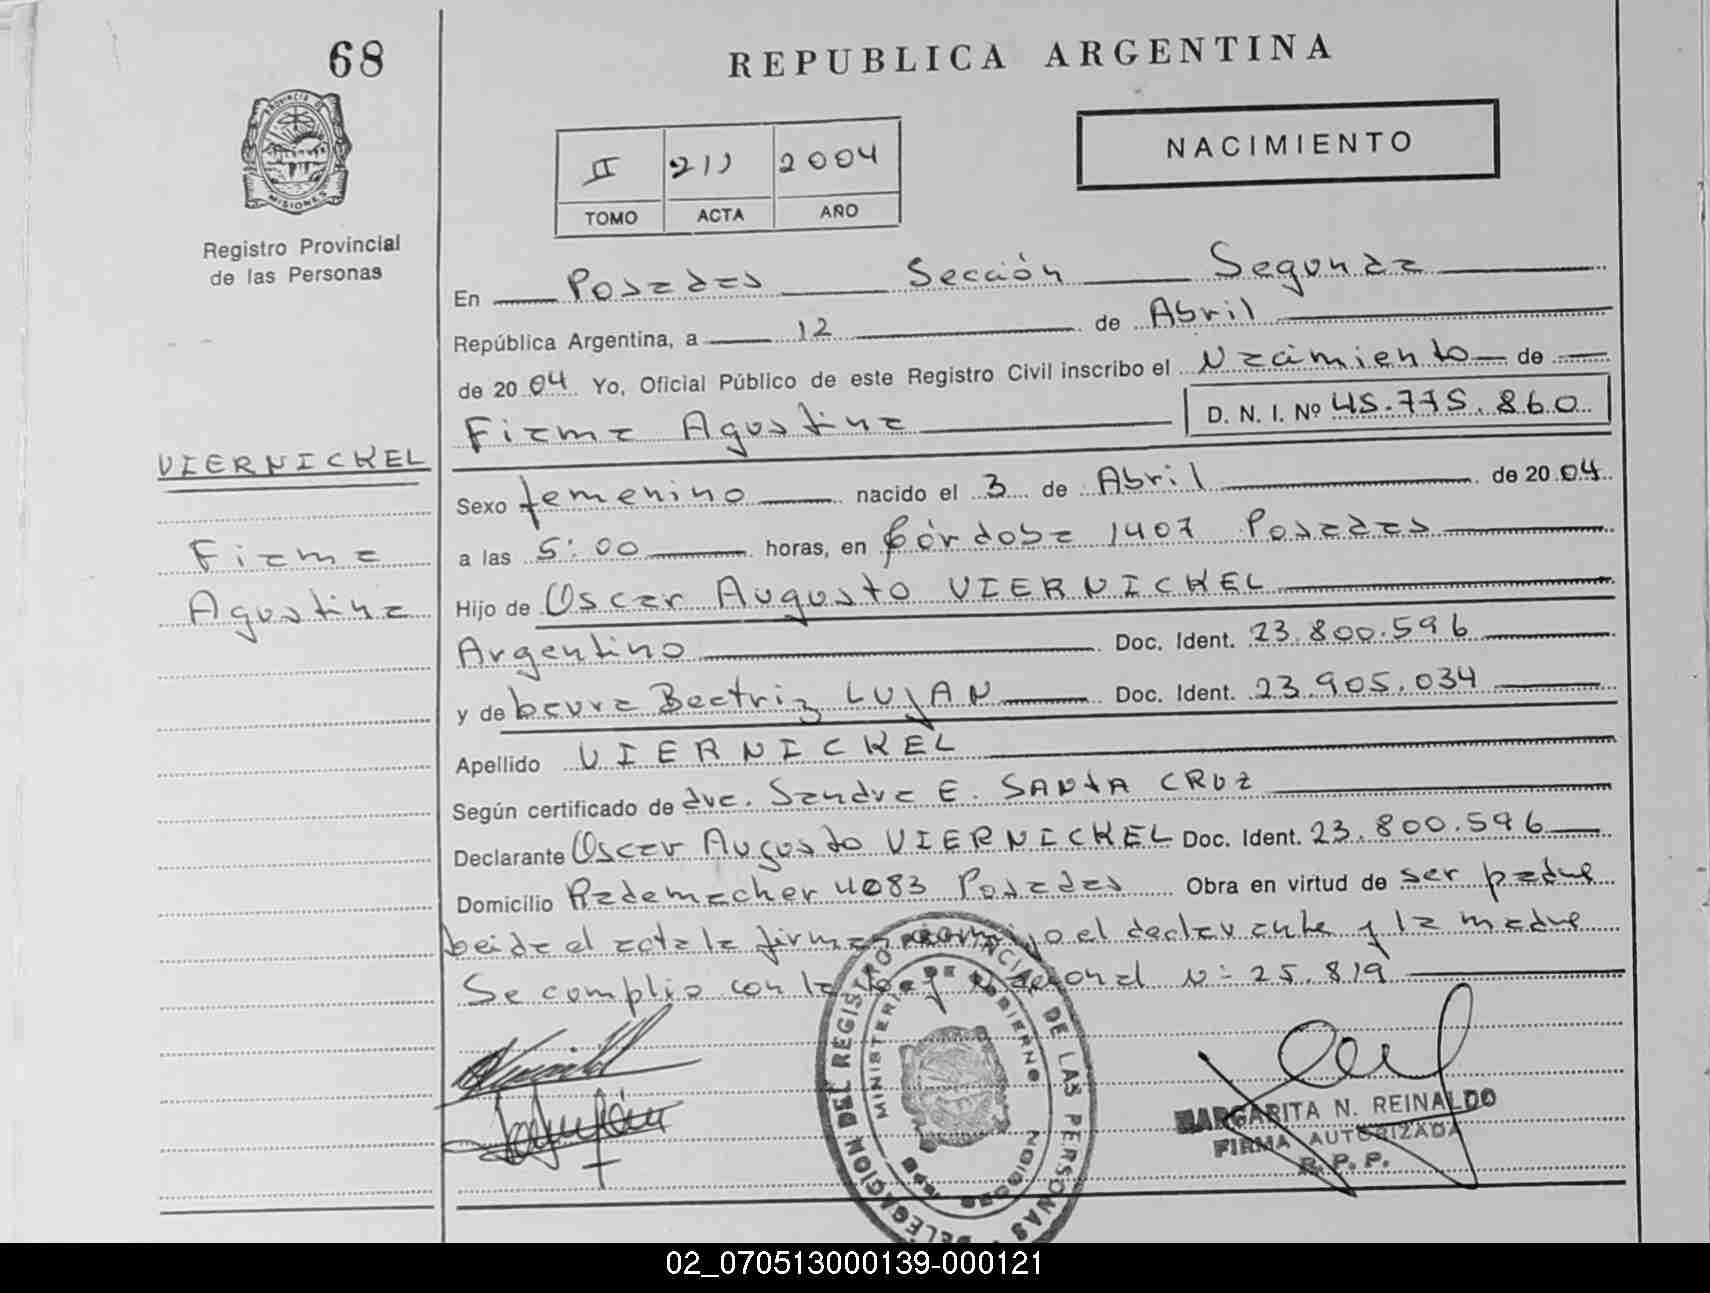 68
REPUBLICA ARGENTINA
PROVINCIA DE
MISIONES
Registro Provincial
de las Personas
II 211 2004
TOMO ACTA AÑO
NACIMIENTO
En Posadas Sección Segunda
República Argentina, a 12 de Abril
de 2004 Yo, Oficial Público de este Registro Civil inscribo el Nacimiento de
Fiama Agustina D. N. I. Nº 45.775.860
VIERNICKEL
Fiama
Agustina
Sexo femenino nacido el 3 de Abril de 2004
a las 5:00 horas, en Córdoba 1407 Posadas
Hijo de Oscar Augusto VIERNICKEL
Argentino Doc. Ident. 23.800.596
y de Laura Beatriz LUJAN Doc. Ident. 23.905.034
Apellido VIERNICKEL
Según certificado de dra. Sandra E. SANTA CRUZ
Declarante Oscar Augusto VIERNICKEL Doc. Ident. 23.800.596
Domicilio Rademacher 4083 Posadas Obra en virtud de ser padre
Leida el acta la firman conmigo el declarante y la madre
Se complio con la Ley Nacional N= 25.819
DELEGACION DEL REGISTRO PROVINCIAL DE LAS PERSONAS
MINISTERIO DE GOBIERNO
MARGARITA N. REINALDO
FIRMA AUTORIZADA
R. P. P.
02_070513000139-000121